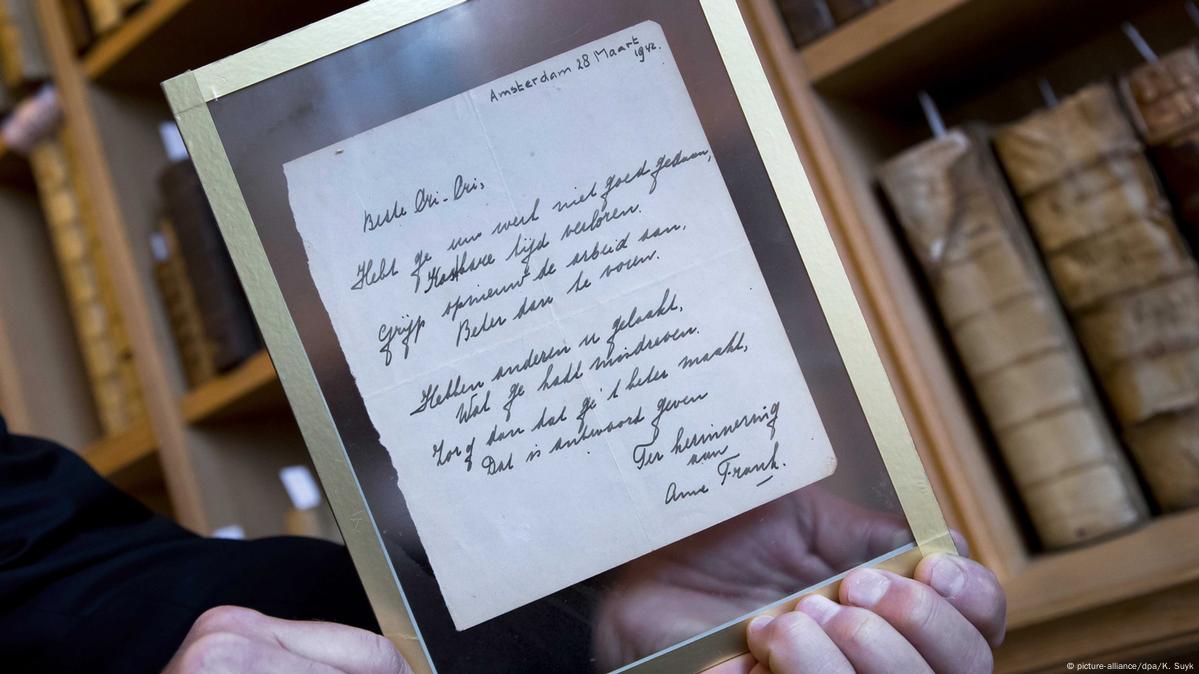 Amsterdam 28 Maart
1942.
Beste Cri-Cri,
Hebt ge uw werk niet goed gedaan,
Kostbare tijd verloren.
Grijp opnieuw de arbeid aan,
Beter dan te voren.
Hebben anderen u gelaakt,
Wat ge hadt misdreven.
Zorg dan dat ge 't beter maakt,
Dat is antwoord geven
Ter herinnering
aan
Anne Frank.
© picture-alliance/dpa/K. Suyk